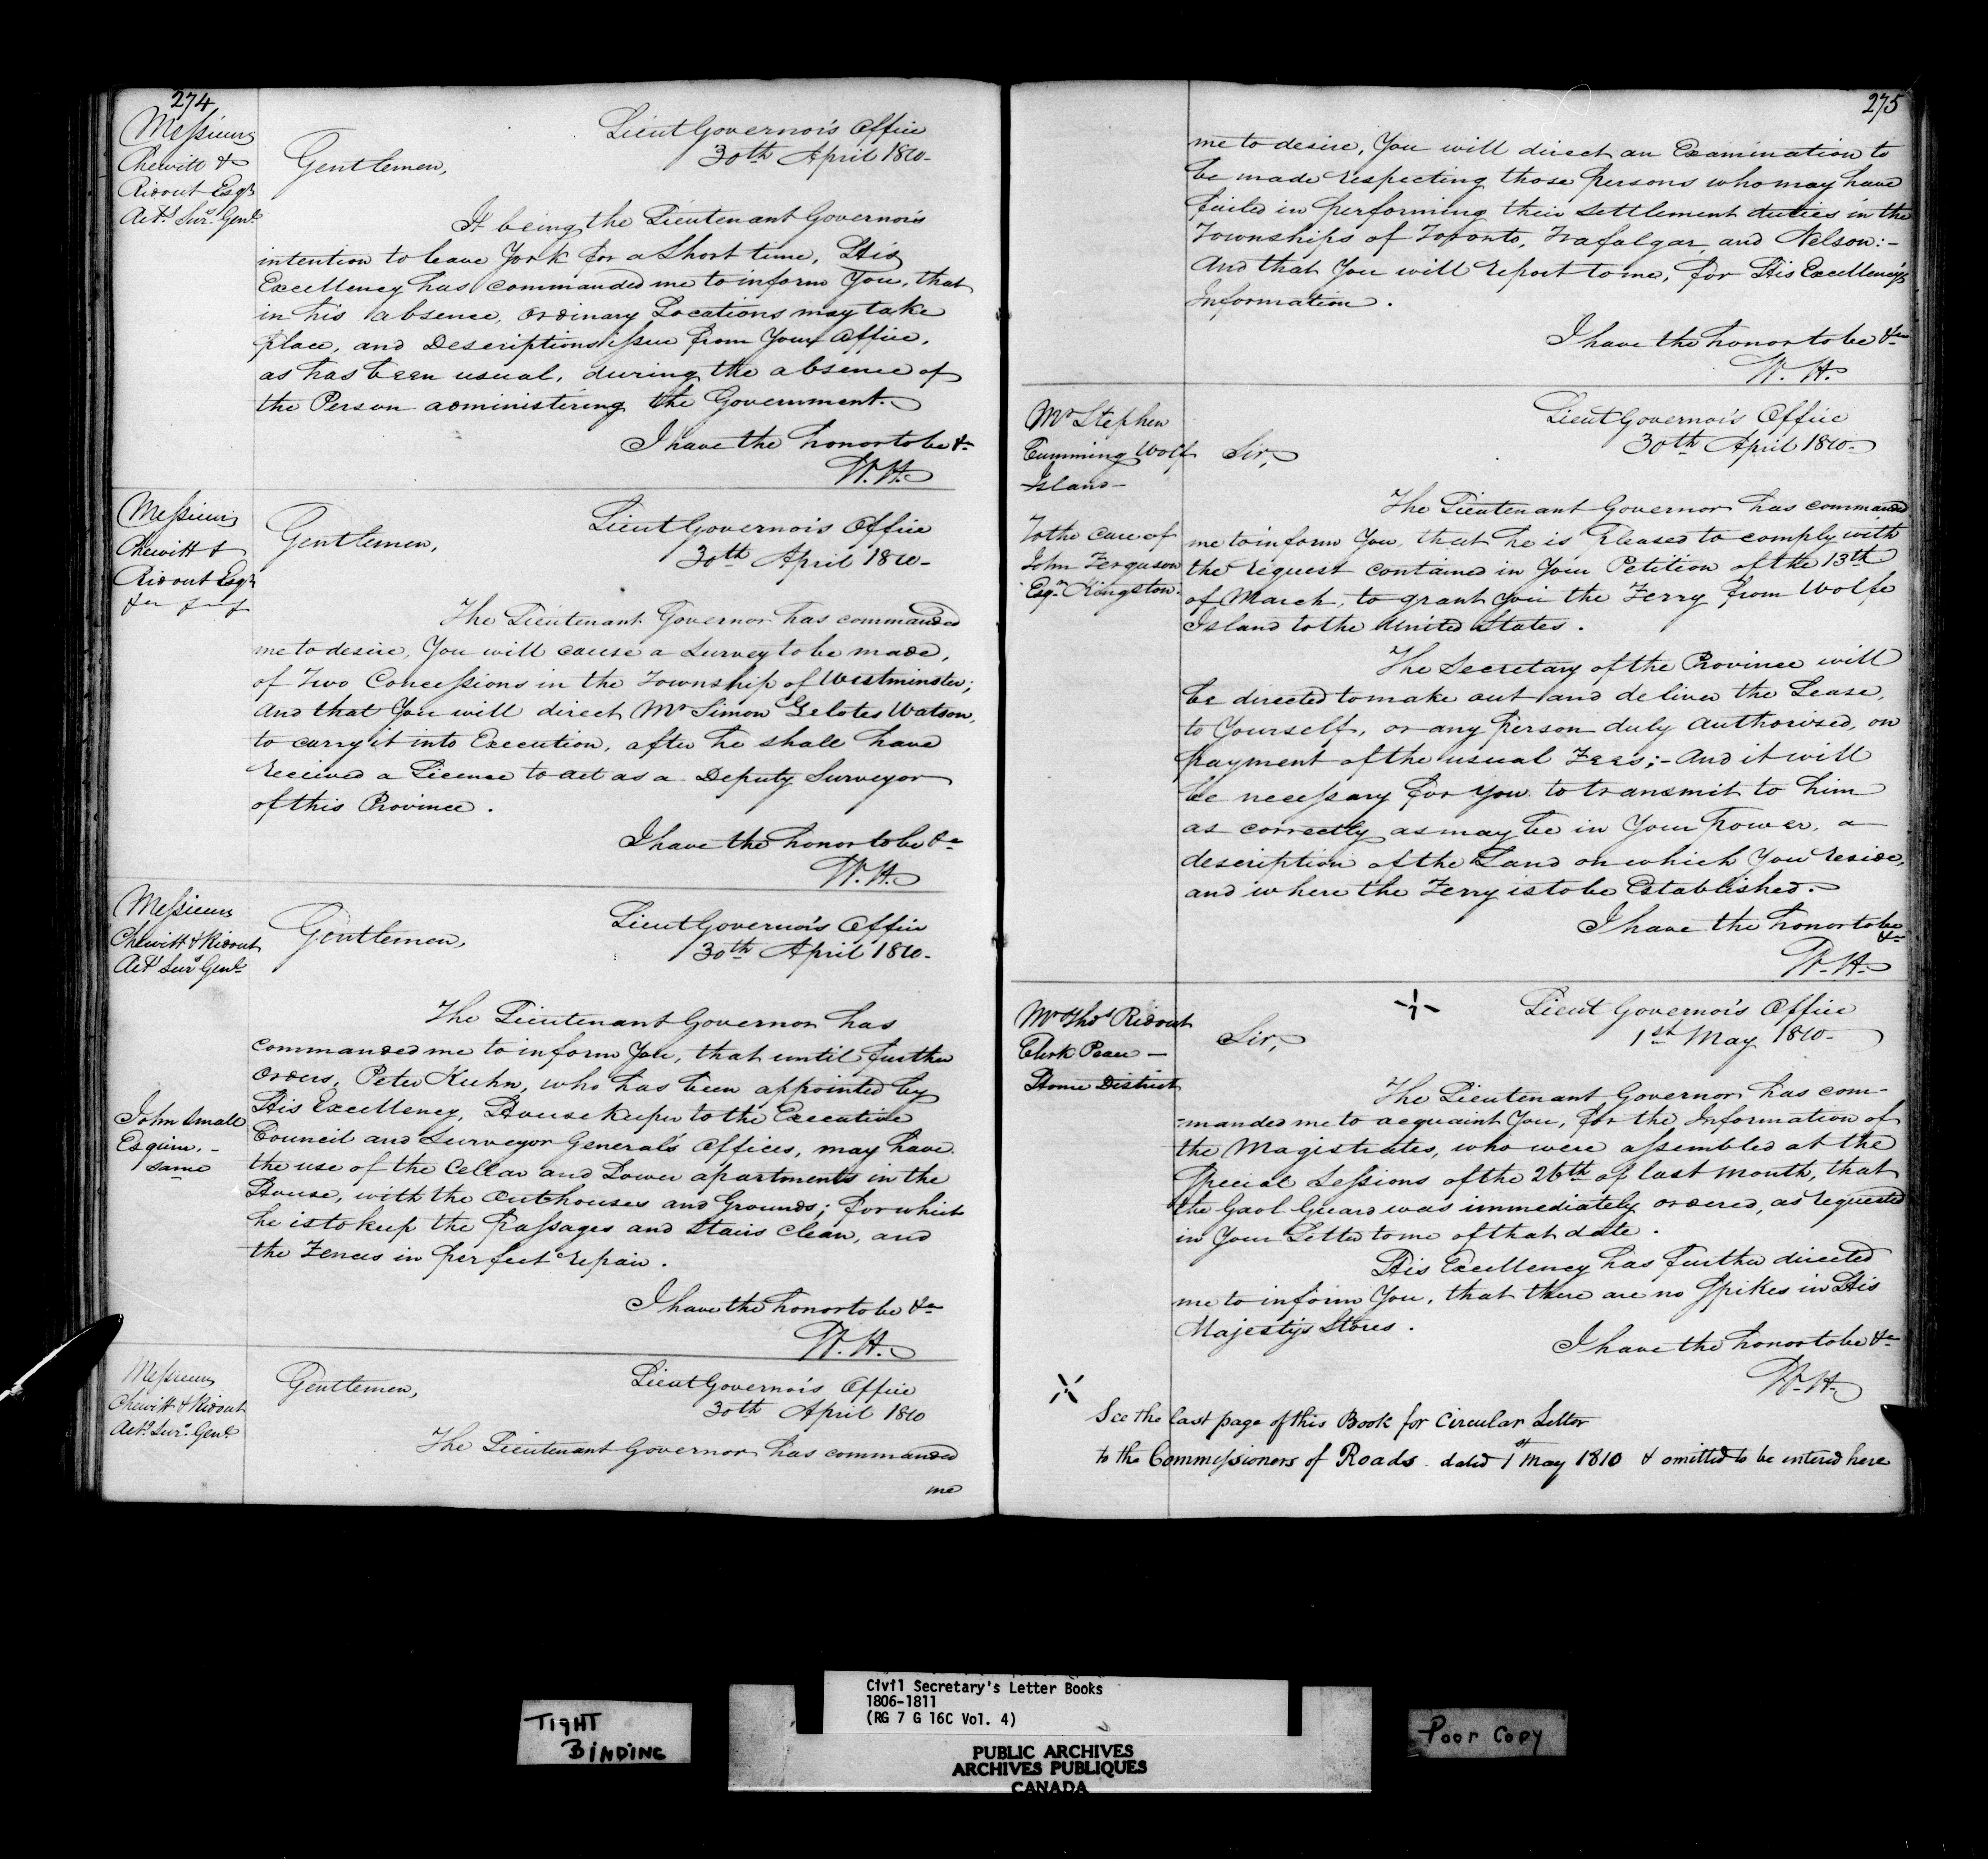 274
Messieurs
Chewitt &
Ridout Esqrs
Actg Surs Genl
Lieut Governor's Office
30th April 1810-
Gentlemen,
It being the Lieutenant Governor's
intention to leave York for a Short time, His
Excellency has commanded me to inform You, that
in his absence, ordinary Locations may take
place, and Descriptions issue from Your Office,
as has been usual, during the absence of
the Person administering the Government.
I have the honor to be &c
W. H.
Messieurs
Chewitt &
Ridout Esqrs
Lieut Governor's Office
30th April 1810-
Gentlemen,
The Lieutenant Governor has commanded
me to desire, You will cause a Survey to be made,
of Two Concessions in the Township of Westminster;
And that You will direct Mr Simon Zelotes Watson,
to carry it into Execution, after he shall have
received a Licence to act as a Deputy Surveyor
of this Province.
I have the honor to be &c
W. H.
Messieurs
Chewitt & Ridout
Actg Surs Genl
Lieut Governor's Office
30th April 1810-
Gentlemen,
The Lieutenant Governor has
commanded me to inform You, that until further
Orders, Peter Kuhn, who has been appointed by
His Excellency, Housekeeper to the Executive
Council and Surveyor General's Offices, may have
the use of the Cellar and Lower apartments in the
House, with the Outhouses and Grounds; for which
he is to keep the Passages and Stairs clean, and
the Fences in perfect repair.
John Small
Esquire. -
same
I have the honor to be &c
W. H.
Messieurs
Chewitt & Ridout
Actg Surs Genl
Lieut Governor's Office
30th April 1810
Gentlemen,
The Lieutenant Governor has commanded
me
275
me to desire, You will direct an Examination to
be made respecting those Persons who may have
failed in performing their Settlement duties in the
Townships of Toronto, Trafalgar, and Nelson:-
And that You will report to me, for His Excellency's
Information.
I have the honor to be &c
W. H.
Mr Stephen
Cumming Wolf
Island-
To the care of
John Ferguson
Esqr Kingston.
Lieut Governor's Office
30th April 1810-
Sir,
The Lieutenant Governor has commanded
me to inform You, that he is Pleased to comply with
the request contained in Your Petition of the 13th
of March, to grant you the Ferry from Wolfe
Island to the United States.
The Secretary of the Province will
be directed to make out and deliver the Lease,
to Yourself, or any person duly authorised, on
Payment of the usual Fees;- And it will
be necessary for You to transmit to him
as correctly as may be in Your Power, a
description of the Land on which You reside,
and where the Ferry is to be Established.
I have the honor to be
&c
W. H.
Mr Thos Ridout
Clerk Peace -
Home District
Lieut Governor's Office
1st May 1810-
Sir,
The Lieutenant Governor has com-
-manded me to acquaint You, for the Information of
the Magistrates, who were assembled at the
Special Sessions of the 26th of last Month, that
the Gaol Guard was immediately ordered, as requested
in Your Letter to me of that date.
His Excellency has further directed
me to inform You, that there are no Spikes in His
Majesty's Stores.
I have the honor to be &c
W. H.
See the last page of this Book for Circular Letter
to the Commissioners of Roads dated 1st May 1810 & omitted to be entered here
TIGHT
BINDING
Civil Secretary's Letter Books
1806-1811
(RG 7 G 16C Vol. 4)
PUBLIC ARCHIVES
ARCHIVES PUBLIQUES
CANADA
Poor Copy